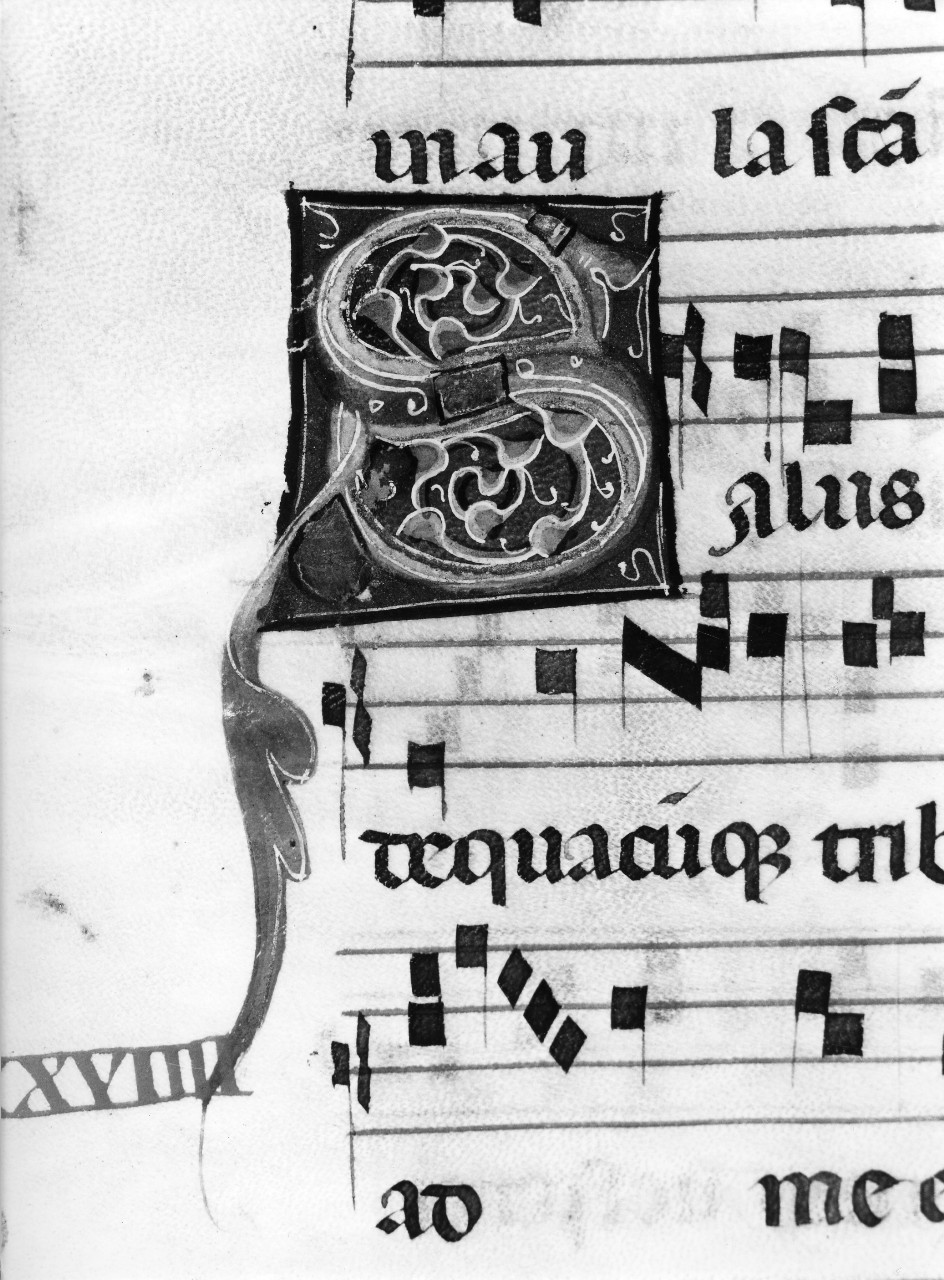 in au la scā
Salus
de quacūqꝫ trib
XXVIIII
ad me